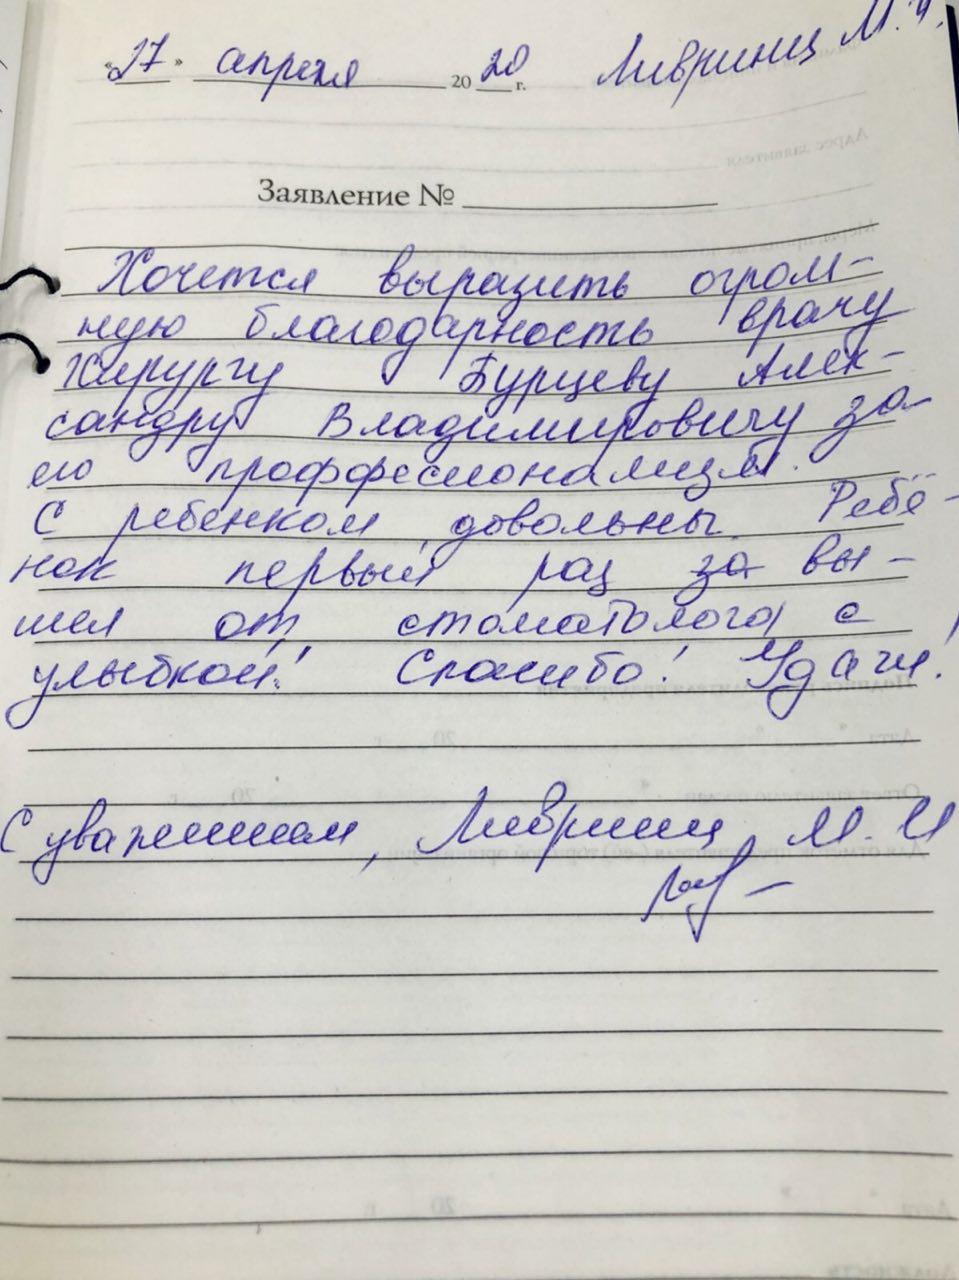 «27» апреля 2020 г. Ливринц М.И.
Заявление №
Хочется выразить огром-
ную благодарность врачу
хирургу Бурцеву Алек-
сандру Владимировичу за
его проффесионализм.
С ребенком довольны. Ребё-
нок первый раз за вы-
шел от стоматолога с
улыбкой! Спасибо! Удачи!
С уважением, Ливринц М.И